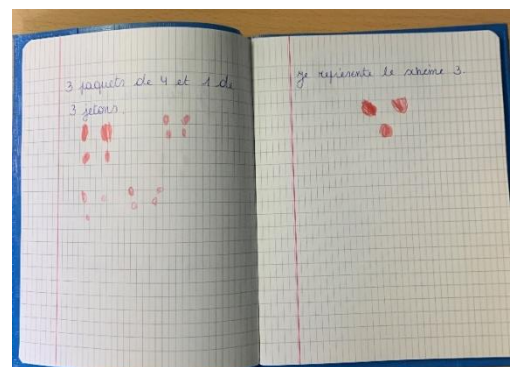 3 paquets de 4 et 1 de
3 jetons
je représente le schème 3.